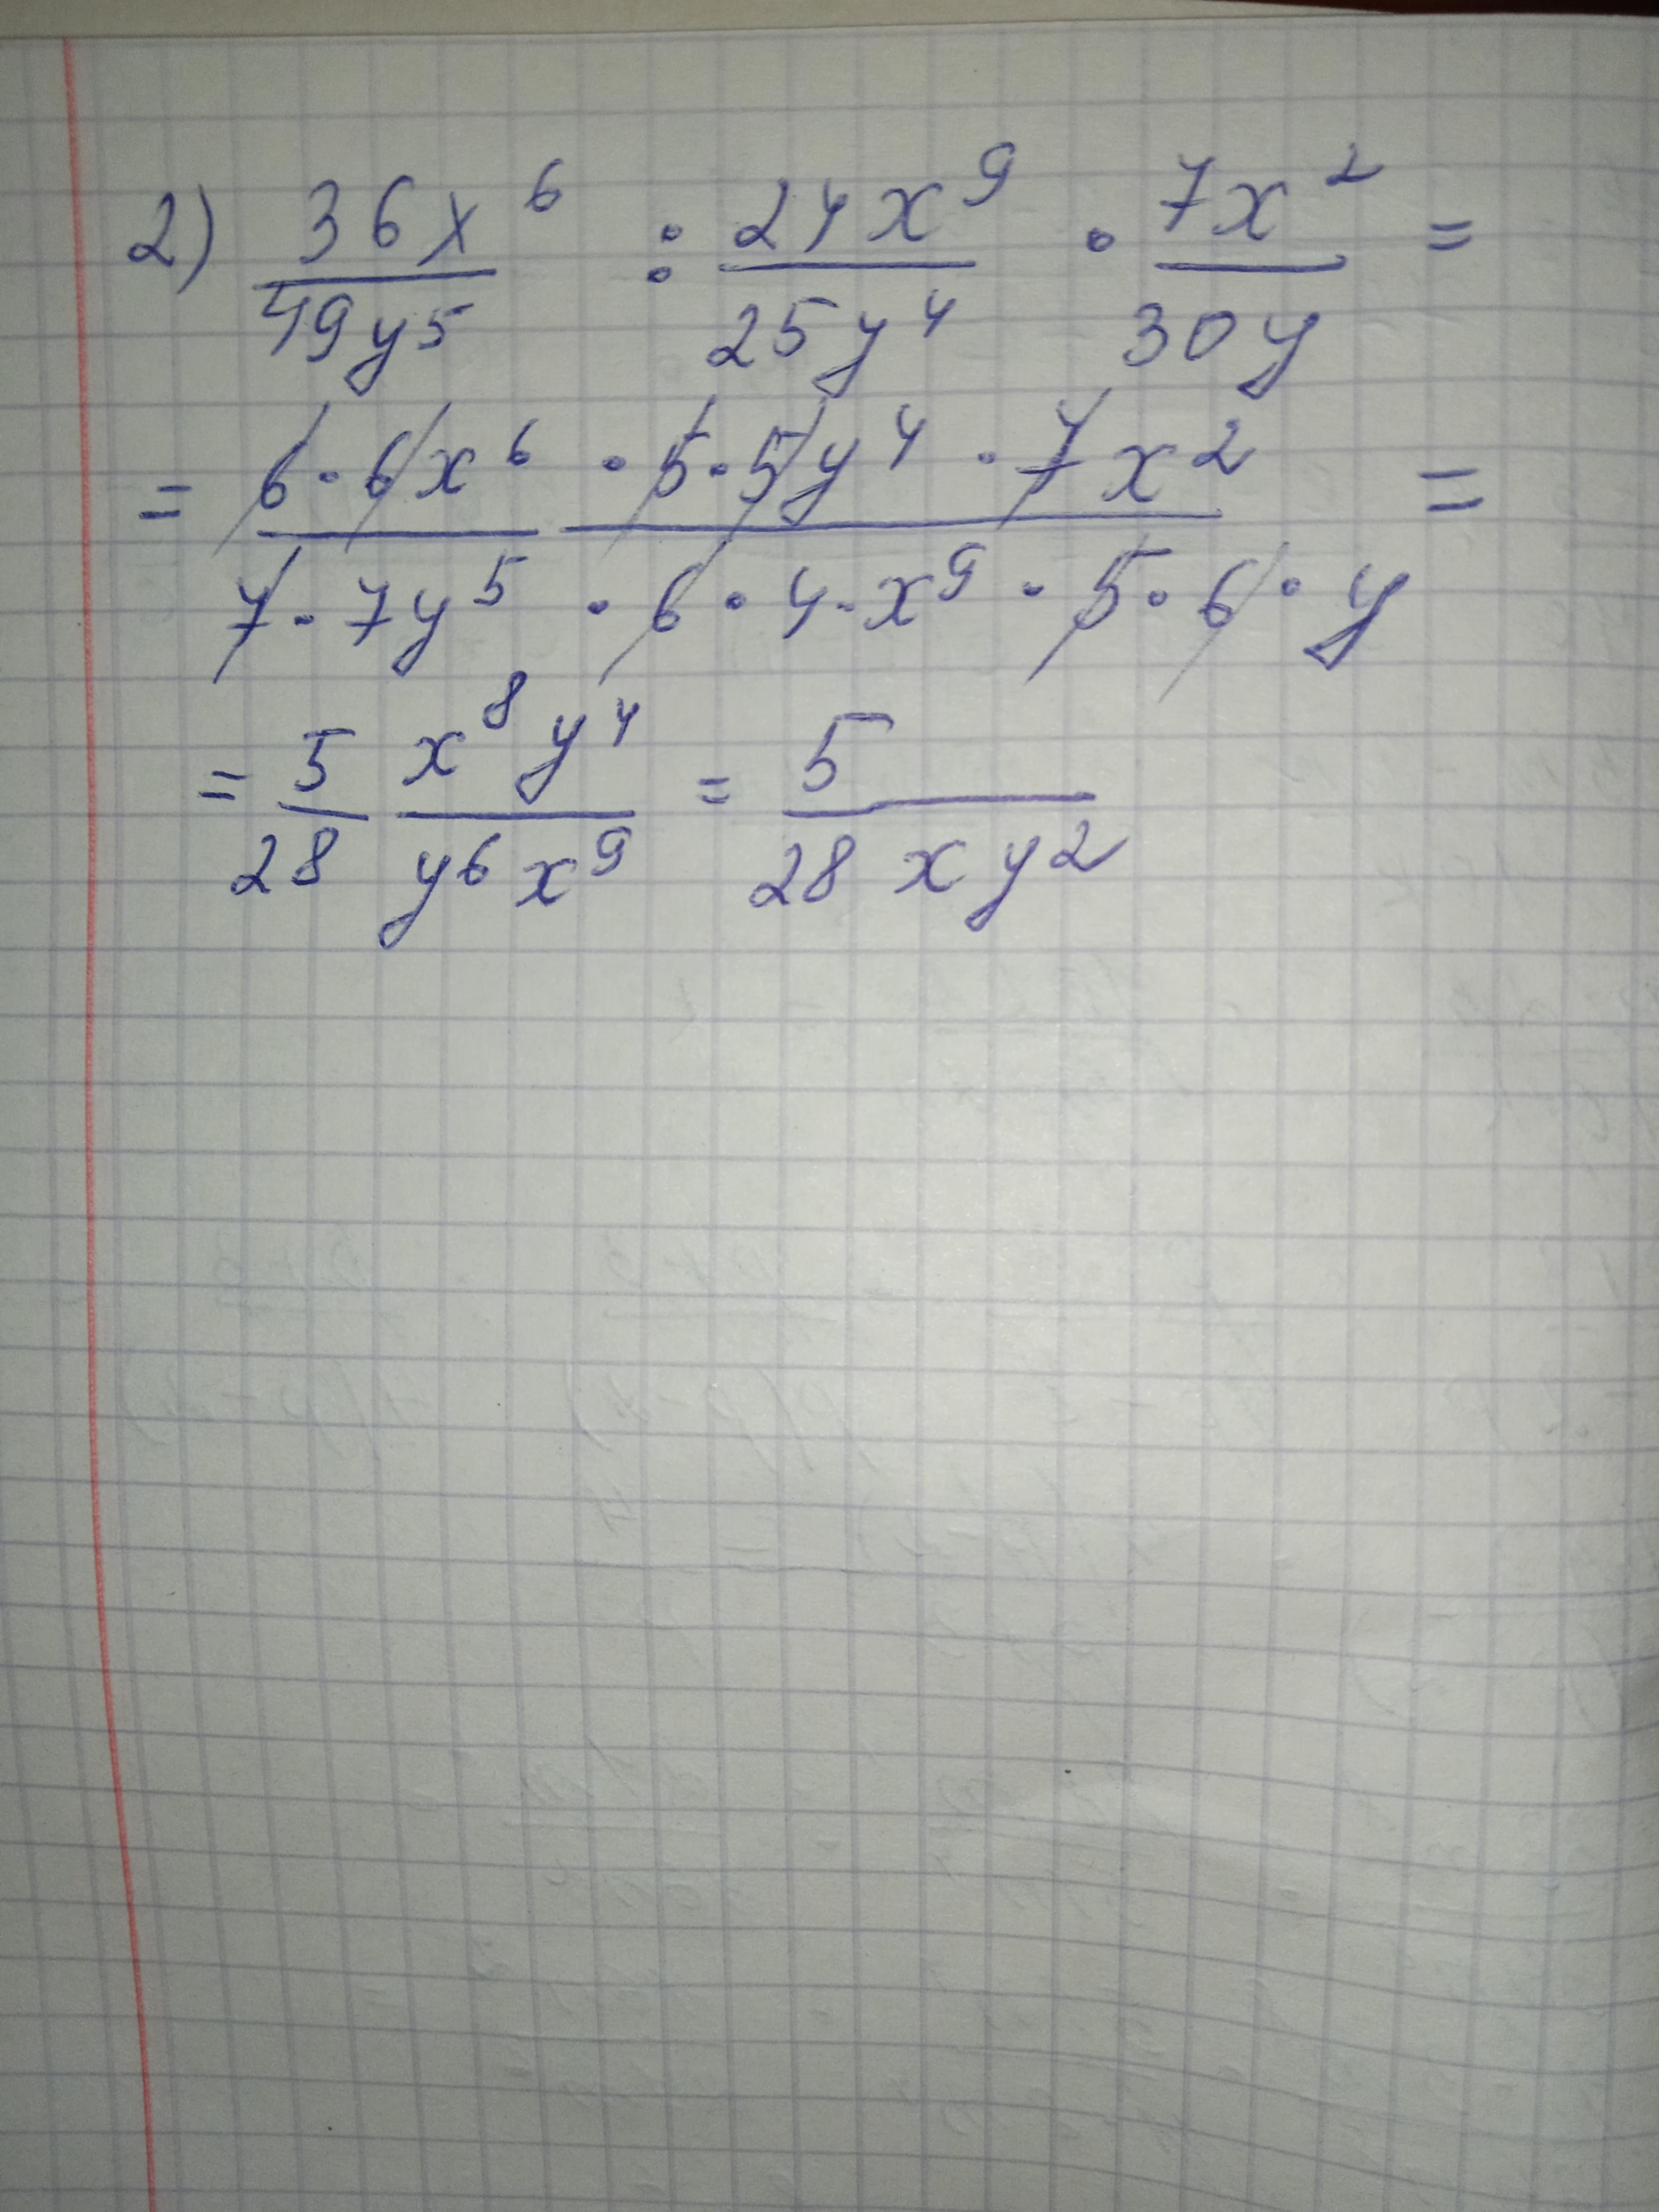 2) 36x^6/49y^5 : 24x^9/25y^4 · 7x^2/30y =
= 6·6x^6 · 5·5y^4 · 7x^2 / 7·7y^5 · 6·4·x^9 · 5·6·y =
= 5/28 x^8y^4/y^6x^9 = 5/28xy^2